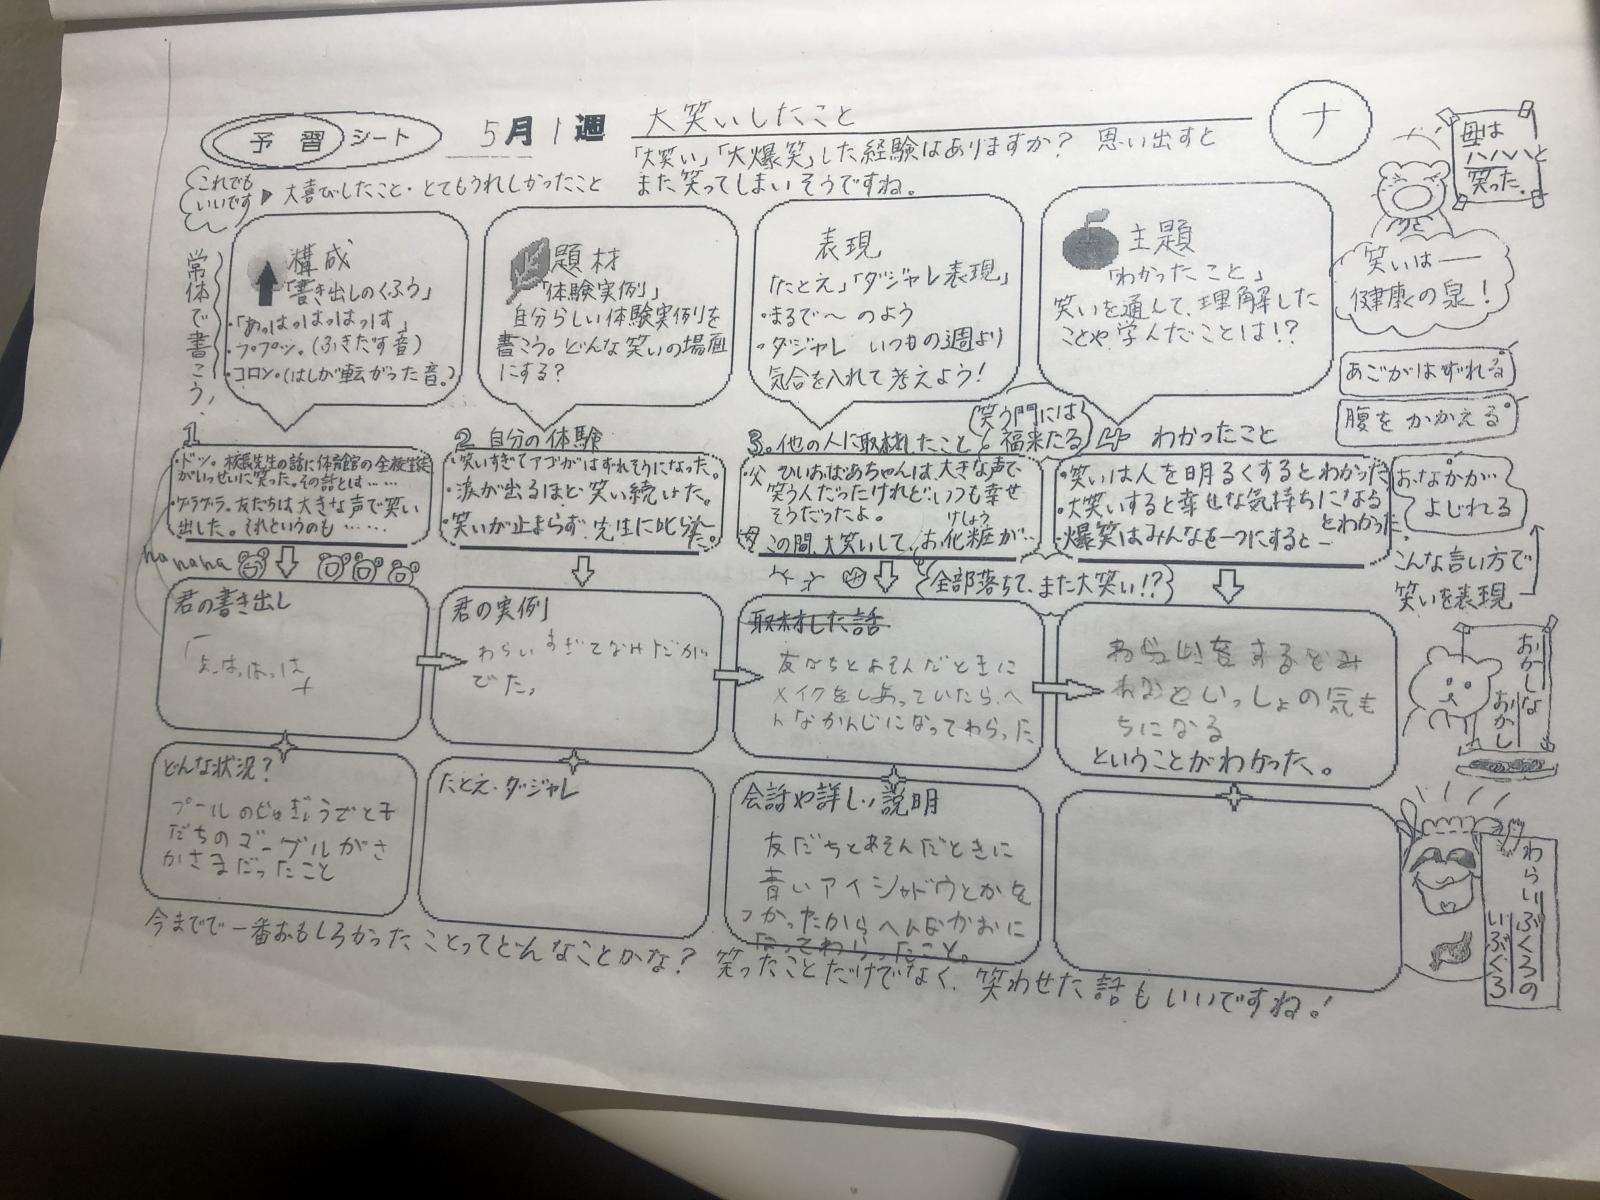 予習シート
5月1週
大笑いしたこと
ナ
「大笑い」「大爆笑」した経験はありますか？ 思い出すと
また笑ってしまいそうですね。
これでも
いいです
▶ 大喜びしたこと・とてもうれしかったこと
母は
ハハハハと
笑った。
常体で書こう。
構成
「書き出しのくふう」
・「あっはっはっはっはっす」
・ププッ。(ふきだす音)
・コロン。(はしが転がった音。)
題材
「体験実例」
自分らしい体験実例を
書こう。どんな笑いの場面
にする？
表現
「たとえ」「ダジャレ表現」
・まるで〜のよう
・ダジャレ いつもの週より
気合を入れて考えよう！
主題
「わかったこと」
笑いを通して、理解した
ことや学んだことは!？
笑いは――
健康の泉！
あごがはずれる
腹をかかえる
1
・ドッ。校長先生の話に体育館の全校生徒
がいっせいに笑った。その話とは……
・ゲラゲラ。友だちは大きな声で笑い
出した。それというのも……
2 自分の体験
・笑いすぎてアゴがはずれそうになった。
・涙が出るほど笑い続けた。
・笑いが止まらず先生に叱られた。
3。他の人に取材したこと
笑う門には
福来たる
・父 ひいおばあちゃんは、大きな声で
笑う人だったけれど、いつも幸せ
そうだったよ。
母 この間、大笑いして、お化粧が…
けしょう
全部落ちて、また大笑い!？
4 わかったこと
・笑いは人を明るくするとわかった
・大笑いすると幸せな気持ちになる
とわかった
・爆笑はみんなを一つにすると―
おなかが
よじれる
こんな言い方で
笑いを表現
ha haha
君の書き出し
君の実例
わらいすぎてなみだが
でた。
取材した話
友だちとあそんだときに
メイクをしあっていたら、へ
んなかんじになってわらった
みんなといっしょの気も
ちになる
ということがわかった。
おかしな
おかし
どんな状況？
プールのじゅぎょうでとも
だちのゴーグルがさ
かさまだったこと
たとえ・ダジャレ
会話や詳しい説明
友だちとあそんだときに
青いアイシャドウとかを
つかったからへんなかおに
なってわらったこと。
わらいぶくろの
いぶくろ
今までで一番おもしろかったことってどんなことかな？ 笑ったことだけでなく、笑わせた話もいいですね！